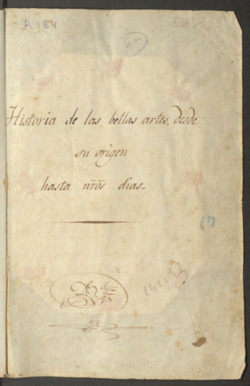 A 184
Historia de las bellas artes, desde
su origen
hasta nrōs dias.